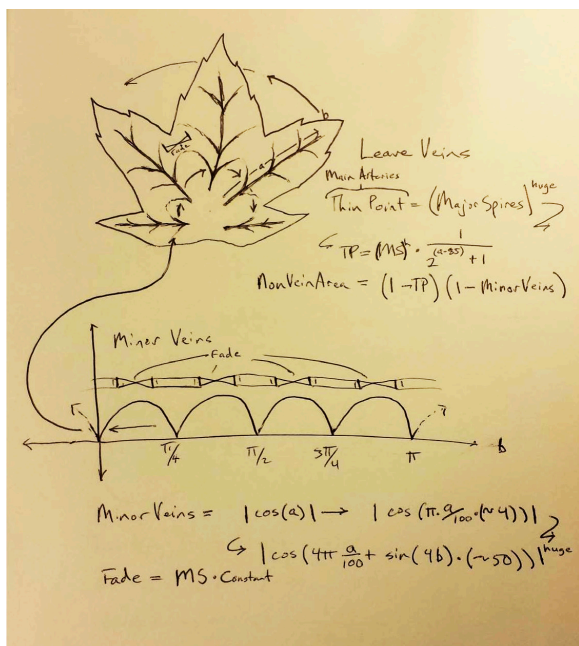 b
Fade
a
Leave Veins
Main Arteries
Thin Point = (Major Spires)^huge
TP = (MS)^k · 1 / 2^(a-85) + 1
NonVeinArea = (1-TP)(1-MinorVeins)
Minor Veins
Fade
π/4 π/2 3π/4 π b
MinorVeins = |cos(a)| → |cos(π·a/100·(~4))|
|cos(4π a/100 + sin(4b)·(~50))|^huge
Fade = MS·Constant